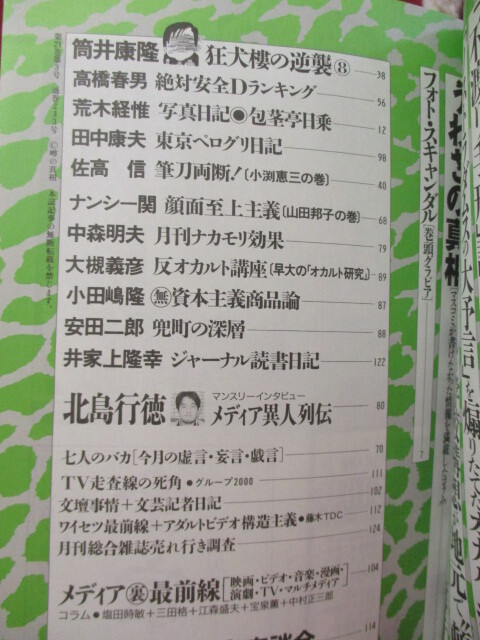 筒井康隆 狂犬樓の逆襲⑧ 38
高橋春男 絶対安全Dランキング 56
荒木経惟 写真日記●包茎亭日乗 12
田中康夫 東京ペログリ日記 98
佐高 信 筆刀両断!〔小渕恵三の巻〕 40
ナンシー関 顔面至上主義〔山田邦子の巻〕 68
中森明夫 月刊ナカモリ効果 79
大槻義彦 反オカルト講座〔早大の「オカルト研究」〕 89
小田嶋隆 ㊰資本主義商品論 87
安田二郎 兜町の深層 88
井家上隆幸 ジャーナル読書日記 122
北島行徳
マンスリーインタビュー
メディア異人列伝 80
七人のバカ[今月の虚言・妄言・戯言] 70
TV走査線の死角●グループ2000 100
文壇事情+文芸記者日記 102
ワイセツ最前線+アダルトビデオ構造主義●藤木TDC 112
月刊総合雑誌売れ行き調査 124
メディア裏最前線[映画・ビデオ・音楽・漫画・演劇・TV・マルチメディア] 104
コラム●塩田時敏+三田格+江森盛夫+宝泉薫+中村正三郎
114
うわさの真相
フォト・スキャンダル[巻頭グラビア]
大予言を煽りたて